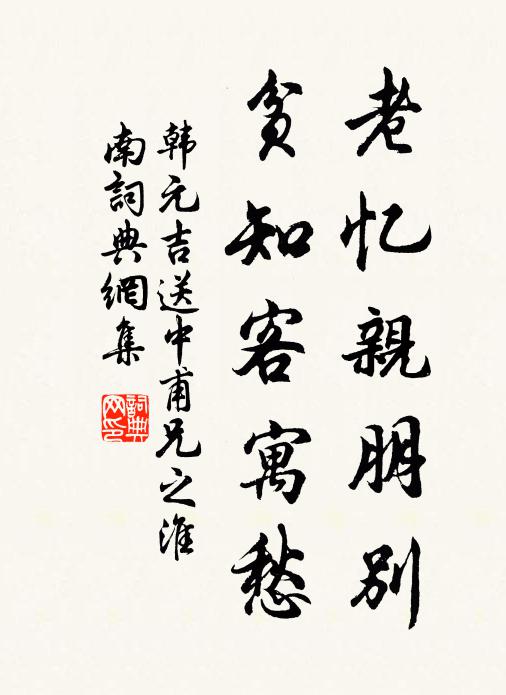 老忆親朋别
貧知客寓愁
韩元吉送中甫兄之淮
南詞典網集
詞典网印